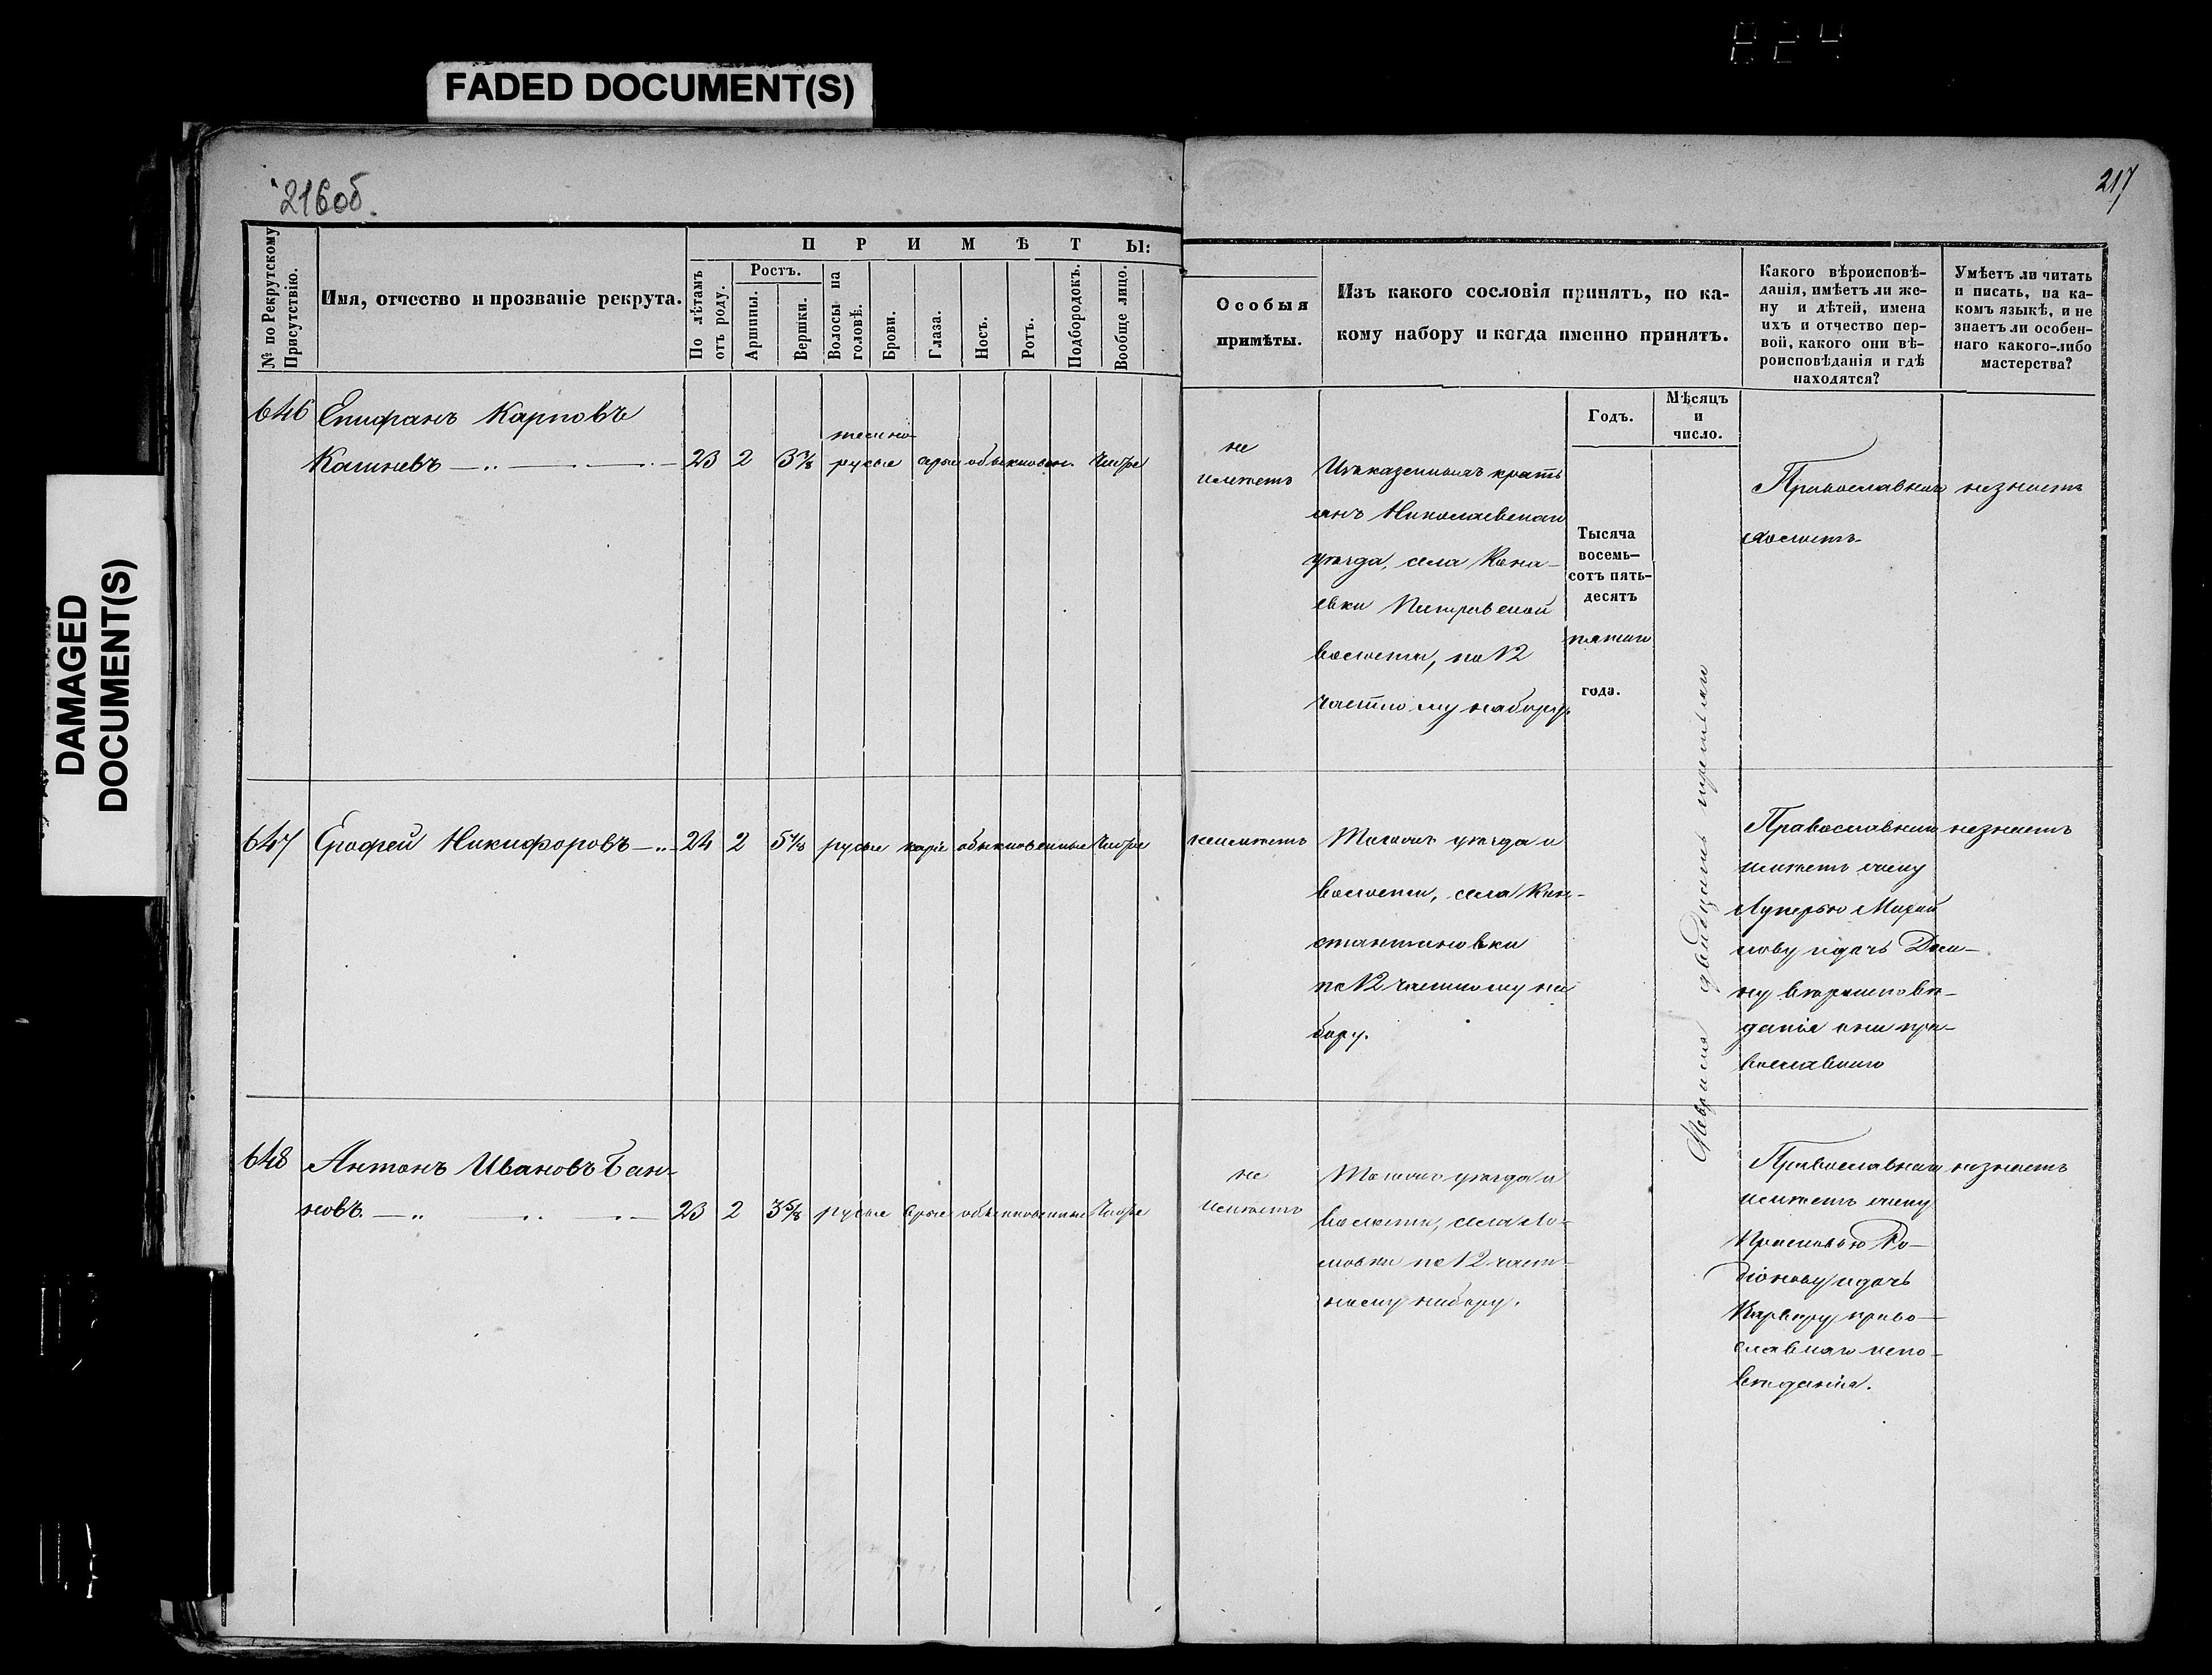 FADED DOCUMENT(S)
DAMAGED
DOCUMENT(S)
824
216об.
217
№ по Рекрутскому Присутствію.
Имя, отчество и прозваніе рекрута.
ПРИМѢТЫ:
По лѣтамъ отъ роду.
Ростъ.
Аршины.
Вершки.
Волосы на головѣ.
Брови.
Глаза.
Носъ.
Ротъ.
Подбородокъ.
Вообще лицо.
Особыя
примѣты.
Изъ какого сословія принятъ, по ка-
кому набору и когда именно принятъ.
Какого вѣроисповѣ-
данія, имѣетъ ли же-
ну и дѣтей, имена
ихъ и отчество пер-
вой, какого они вѣ-
роисповѣданія и гдѣ
находятся?
Умѣетъ ли читать
и писать, на ка-
комъ языкѣ, и не
знаетъ ли особен-
наго какого-либо
мастерства?
Годъ.
Мѣсяцъ
и
число.
646 Епифанъ Карповъ
темно-
23 2 3⅞ русые серые обыкновен. чистое
не
имѣетъ
Изъ казенныхъ крестья
анъ Николаевскаго
уѣзда, села Кана-
евки
волости, по 12
частному набору.
Тысяча
восемь-
сотъ пять-
десятъ
пятаго
года.
Февраля двадцать третьяго
Православный незнаетъ
холостъ
647 Ерофей Никифоровъ 24 2 русые каріе обыкновенные чистое
неимѣетъ
Тогожъ уѣзда и
волости, села Кон-
стантиновки
по 12 частному на
бору.
Православный незнаетъ
имѣетъ жену
Лукерью Михай
лову и дочь Дом-
ну вѣроисповѣ-
данія они пра-
вославнаго
648 Антонъ Ивановъ Бан-
новъ 23 2 3⅝ русые серые обыкновенные чистое
не
имѣетъ
Тогожъ уѣзда и
волости, села Ло-
мовки по 12 част-
ному набору.
Православный незнаетъ
имѣетъ жену
Прасковью Ро-
діонову и дочь
Варвару право-
славнаго испо-
вѣданія.